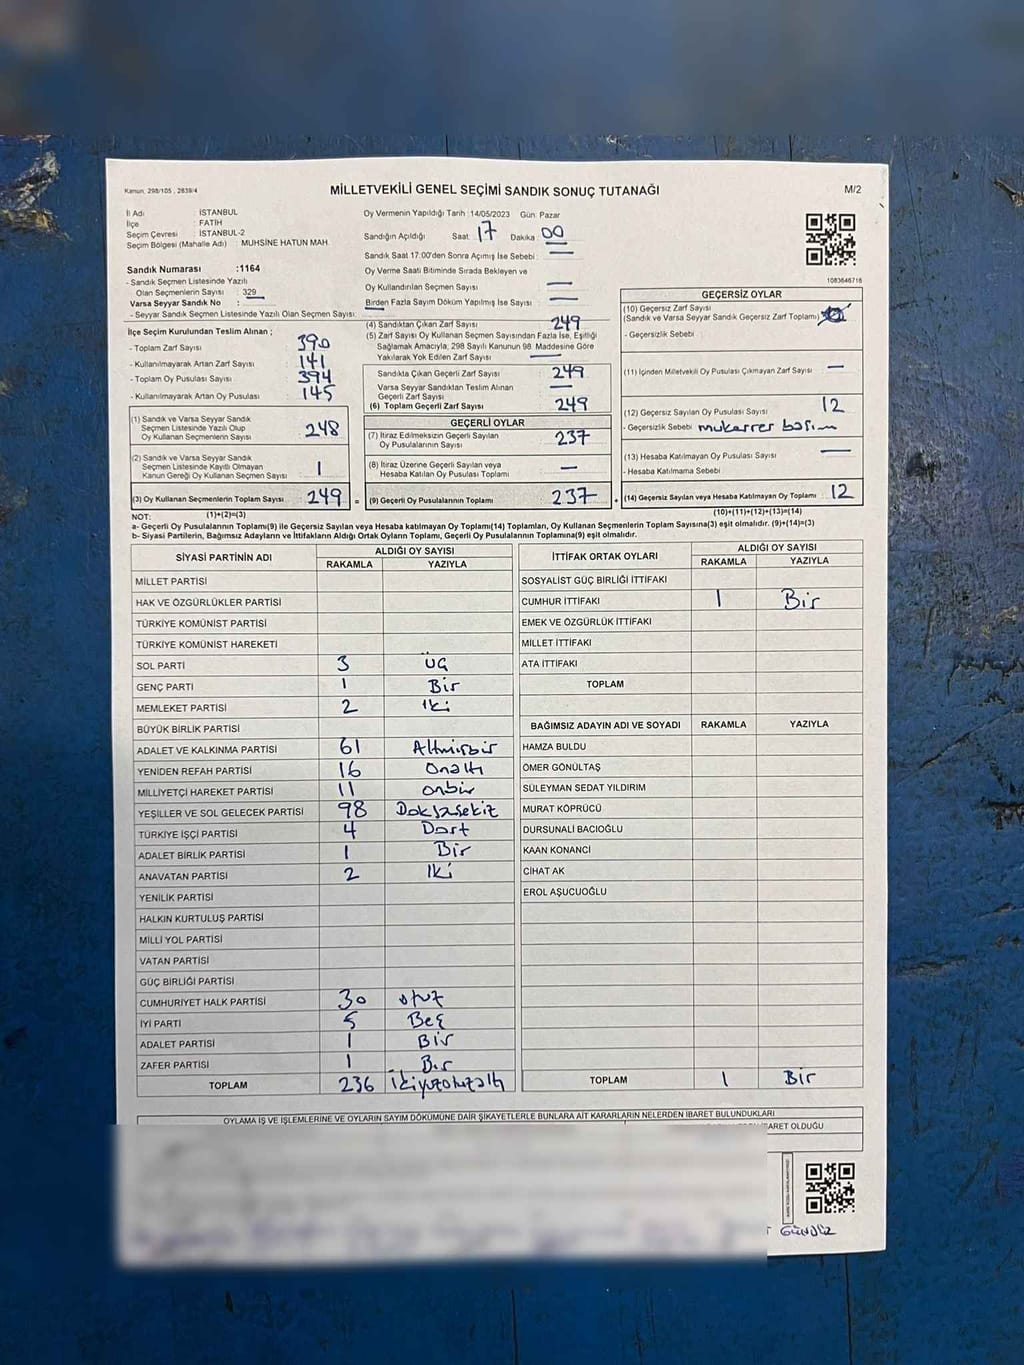 Kanun, 298/105 , 2839/4
MİLLETVEKİLİ GENEL SEÇİMİ SANDIK SONUÇ TUTANAĞI
M/2
İl Adı : İSTANBUL
İlçe : FATİH
Seçim Çevresi : İSTANBUL-2
Seçim Bölgesi (Mahalle Adı) : MUHSİNE HATUN MAH.
Sandık Numarası :1164
- Sandık Seçmen Listesinde Yazılı
Olan Seçmenlerin Sayısı : 329
Varsa Seyyar Sandık No :
- Seyyar Sandık Seçmen Listesinde Yazılı Olan Seçmen Sayısı:
Oy Vermenin Yapıldığı Tarih :14/05/2023 Gün: Pazar
Sandığın Açıldığı Saat: 17 Dakika: 00
Sandık Saat 17:00'den Sonra Açımış İse Sebebi : —
Oy Verme Saati Bitiminde Sırada Bekleyen ve
Oy Kullandırılan Seçmen Sayısı —
Birden Fazla Sayım Döküm Yapılmış İse Sayısı —
1083646716
İlçe Seçim Kurulundan Teslim Alınan ;
- Toplam Zarf Sayısı 390
- Kullanılmayarak Artan Zarf Sayısı 141
- Toplam Oy Pusulası Sayısı 394
- Kullanılmayarak Artan Oy Pusulası 145
(1) Sandık ve Varsa Seyyar Sandık
Seçmen Listesinde Yazılı Olup
Oy Kullanan Seçmenlerin Sayısı 248
(2) Sandık ve Varsa Seyyar Sandık
Seçmen Listesinde Kayıtlı Olmayan
Kanun Gereği Oy Kullanan Seçmen Sayısı 1
(3) Oy Kullanan Seçmenlerin Toplam Sayısı 249 =
(1)+(2)=(3)
(4) Sandıktan Çıkan Zarf Sayısı 249
(5) Zarf Sayısı Oy Kullanan Seçmen Sayısından Fazla İse, Eşitliği
Sağlamak Amacıyla, 298 Sayılı Kanunun 98. Maddesine Göre
Yakılarak Yok Edilen Zarf Sayısı —
Sandıkta Çıkan Geçerli Zarf Sayısı 249
Varsa Seyyar Sandıktan Teslim Alınan
Geçerli Zarf Sayısı —
(6) Toplam Geçerli Zarf Sayısı 249
GEÇERLİ OYLAR
(7) İtiraz Edilmeksizin Geçerli Sayılan
Oy Pusulalarının Sayısı 237
(8) İtiraz Üzerine Geçerli Sayılan veya
Hesaba Katılan Oy Pusulası Toplamı —
(9) Geçerli Oy Pusulalarının Toplamı 237 +
GEÇERSİZ OYLAR
(10) Geçersiz Zarf Sayısı
(Sandık ve Varsa Seyyar Sandık Geçersiz Zarf Toplamı)
- Geçersizlik Sebebi :
(11) İçinden Milletvekili Oy Pusulası Çıkmayan Zarf Sayısı —
(12) Geçersiz Sayılan Oy Pusulası Sayısı 12
- Geçersizlik Sebebi mukerrer basım
(13) Hesaba Katılmayan Oy Pusulası Sayısı —
- Hesaba Katılmama Sebebi
(14) Geçersiz Sayılan veya Hesaba Katılmayan Oy Toplamı 12
(10)+(11)+(12)+(13)=(14)
NOT:
a- Geçerli Oy Pusulalarının Toplamı(9) ile Geçersiz Sayılan veya Hesaba katılmayan Oy Toplamı(14) Toplamları, Oy Kullanan Seçmenlerin Toplam Sayısına(3) eşit olmalıdır. (9)+(14)=(3)
b- Siyasi Partilerin, Bağımsız Adayların ve İttifakların Aldığı Ortak Oyların Toplamı, Geçerli Oy Pusulalarının Toplamına(9) eşit olmalıdır.
SİYASİ PARTİNİN ADI ALDIĞI OY SAYISI
RAKAMLA YAZIYLA
MİLLET PARTİSİ
HAK VE ÖZGÜRLÜKLER PARTİSİ
TÜRKİYE KOMÜNİST PARTİSİ
TÜRKİYE KOMÜNİST HAREKETİ
SOL PARTİ 3 üç
GENÇ PARTİ 1 Bir
MEMLEKET PARTİSİ 2 iki
BÜYÜK BİRLİK PARTİSİ
ADALET VE KALKINMA PARTİSİ 61 Altmışbir
YENİDEN REFAH PARTİSİ 16 Onaltı
MİLLİYETÇİ HAREKET PARTİSİ 11 onbir
YEŞİLLER VE SOL GELECEK PARTİSİ 98 Doksasekiz
TÜRKİYE İŞÇİ PARTİSİ 4 Dört
ADALET BİRLİK PARTİSİ 1 Bir
ANAVATAN PARTİSİ 2 İki
YENİLİK PARTİSİ
HALKIN KURTULUŞ PARTİSİ
MİLLİ YOL PARTİSİ
VATAN PARTİSİ
GÜÇ BİRLİĞİ PARTİSİ
CUMHURİYET HALK PARTİSİ 30 otuz
İYİ PARTİ 5 Beş
ADALET PARTİSİ 1 Bir
ZAFER PARTİSİ 1 Bir
TOPLAM 236 ikiyüzotuzaltı
İTTİFAK ORTAK OYLARI ALDIĞI OY SAYISI
RAKAMLA YAZIYLA
SOSYALİST GÜÇ BİRLİĞİ İTTİFAKI
CUMHUR İTTİFAKI 1 Bir
EMEK VE ÖZGÜRLÜK İTTİFAKI
MİLLET İTTİFAKI
ATA İTTİFAKI
TOPLAM
BAĞIMSIZ ADAYIN ADI VE SOYADI RAKAMLA YAZIYLA
HAMZA BULDU
ÖMER GÖNÜLTAŞ
SÜLEYMAN SEDAT YILDIRIM
MURAT KÖPRÜCÜ
DURSUNALİ BACIOĞLU
KAAN KONANCİ
CİHAT AK
EROL AŞUCUOĞLU
TOPLAM 1 Bir
OYLAMA İŞ VE İŞLEMLERİNE VE OYLARIN SAYIM DÖKÜMÜNE DAİR ŞİKAYETLERLE BUNLARA AİT KARARLARIN NELERDEN İBARET BULUNDUKLARI
BARET OLDUĞU
GÜNDÜZ